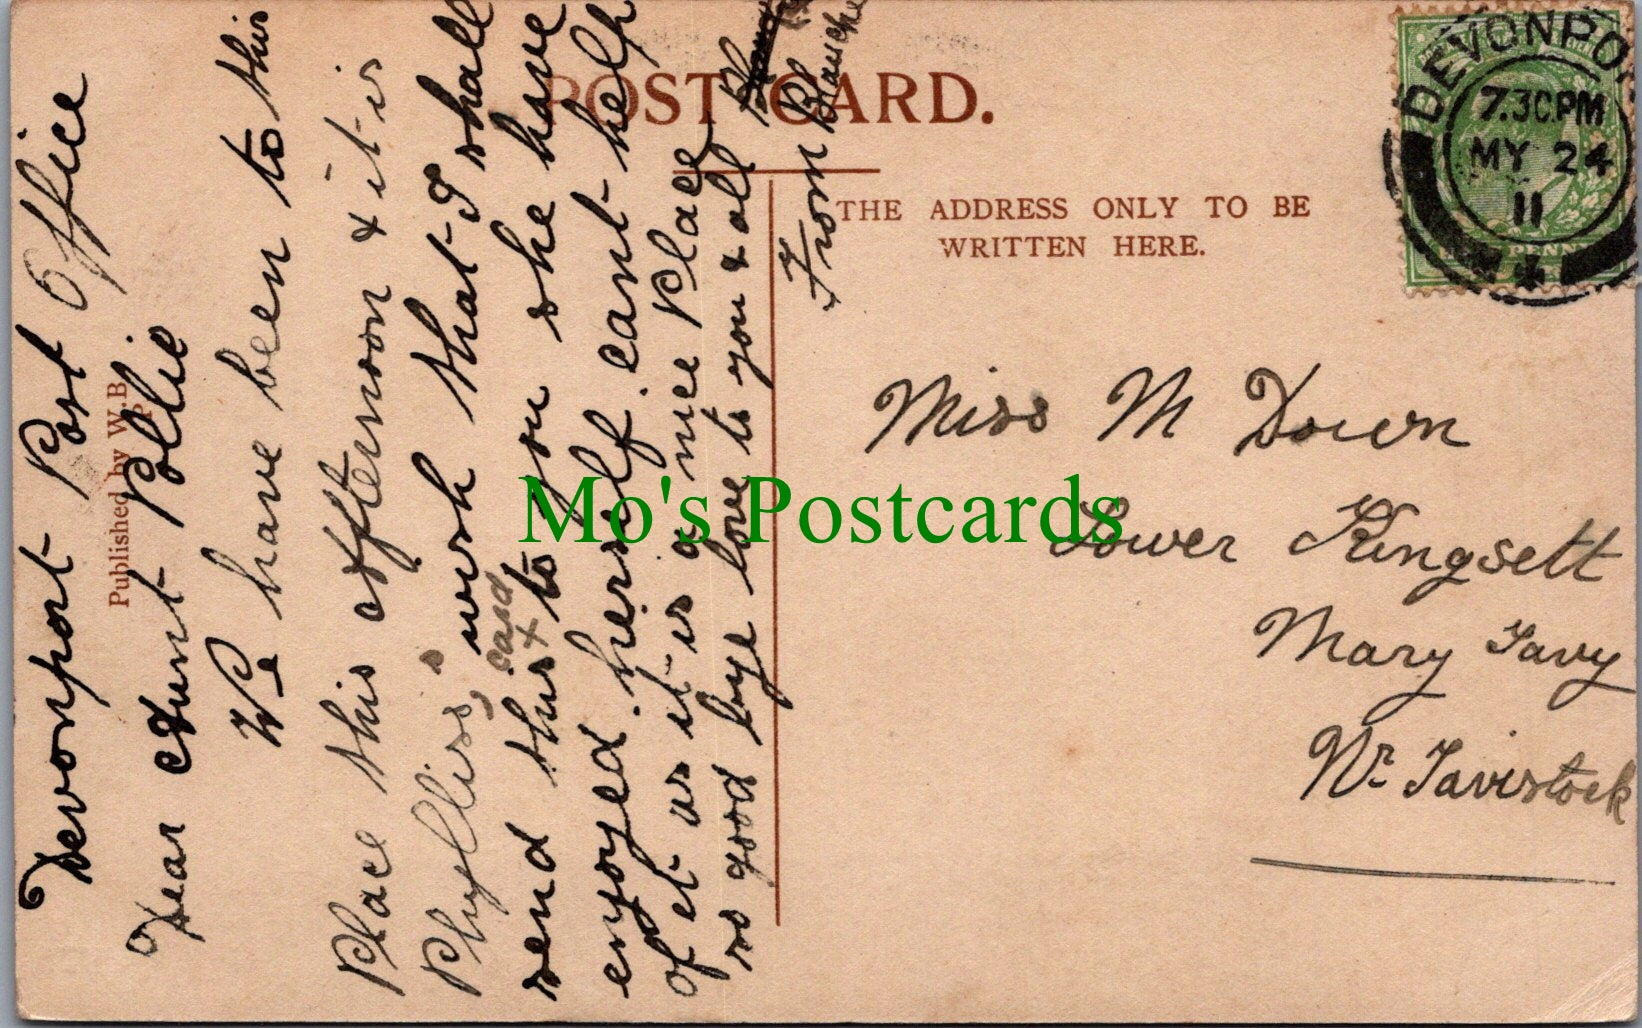 POST CARD.
THE ADDRESS ONLY TO BE
WRITTEN HERE.
Published by W.B
P
DEVONPO
7.30PM
MY 24
11
PENN
Devonport Post Office
Dear Aunt Pollie
We have been to this
Place this afternoon & it is
Phyllis's wish that I shall
card
send this + to you she have
enjoyed herself cant help
of it as it is a nice Place
so good bye love to you & all
From Blanche
Miss M Down
Lower Kingsett
Mary Tavy
Nr Tavistock
Mo's Postcards